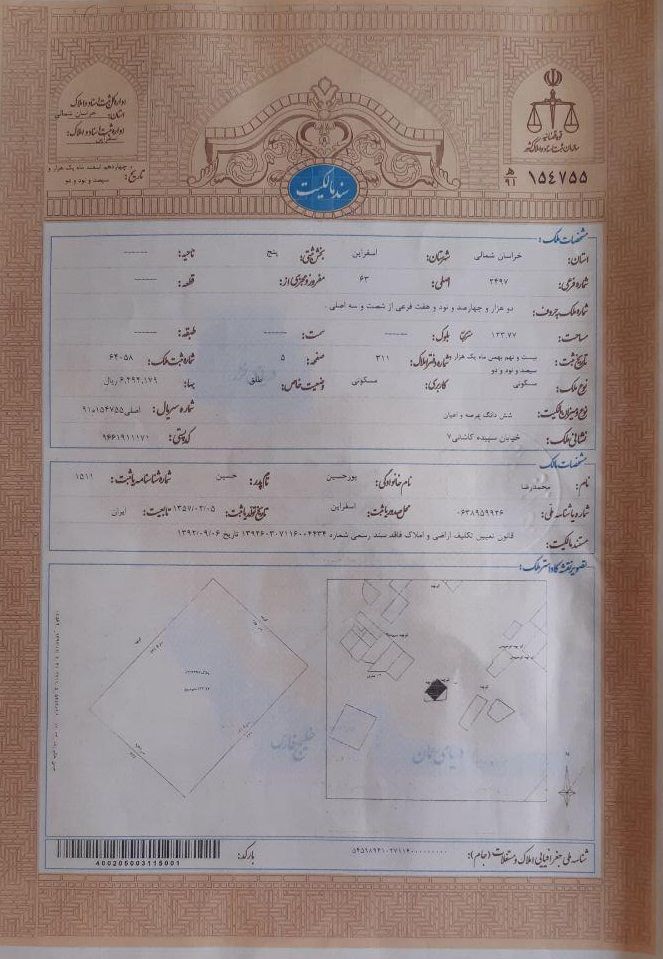 اداره کل ثبت اسناد و املاک
استان: خراسان شمالی
اداره ثبت اسناد و املاک:
اسفراین
تاریخ: چهاردهم اسفند ماه یک هزار و
سیصد و نود و دو
قوه قضائیه
سازمان ثبت اسناد و املاک کشور
۱۵٤۷۵۵ ه‍ ۹۱
سند مالکیت
مشخصات ملک:
استان: خراسان شمالی شهرستان: اسفراین بخش ثبتی: پنج ناحیه: ------
شماره فرعی: ۲۴۹۷ اصلی: ۶۳ مفروز و مجزی از: قطعه: ------
شماره ملک بحروف: دو هزار و چهارصد و نود و هفت فرعی از شصت و سه اصلی .
مساحت: ۱۲۳.۷۷ بلوک: ------ سمت: ------ طبقه: ------
تاریخ ثبت: بیست و نهم بهمن ماه یک هزار و سیصد و نود و دو شماره دفتر املاک: ۳۱۱ صفحه: ۵ شماره ثبت ملک: ۶۴۰۵۸
نوع ملک: مسکونی کاربری: مسکونی وضعیت خاص: طلق بها: ۶,۴۹۲,۱۷۹ ریال
نوع و میزان مالکیت: شش دانگ عرصه و اعیان شماره سریال: اصلی ۹۱۰۱۵۴۷۵۵
نشانی ملک: خیابان سپیده کاشانی۷ کدپستی: ۹۶۶۱۹۱۱۱۷۱
مشخصات مالک
نام: محمدرضا نام خانوادگی: پورحسین نام پدر: حسین شماره شناسنامه یا ثبت: ۱۵۱۱
شماره یا شناسه ملی: ۰۶۳۸۹۵۹۹۳۶ محل صدور یا ثبت: اسفراین تاریخ تولد یا ثبت: ۱۳۵۷/۰۲/۰۵ تابعیت: ایران
مستند مالکیت: قانون تعیین تکلیف اراضی و املاک فاقد سند رسمی شماره ۱۳۹۲۶۰۳۰۷۱۱۶۰۰۴۴۳۴ تاریخ ۱۳۹۲/۰۹/۰۶
تصویر نقشه کاداستر ملک:
خلیج فارس
دریای عمان
شناسه ملی جغرافیایی املاک و مستغلات (جام):
بارکد:
400205003115001